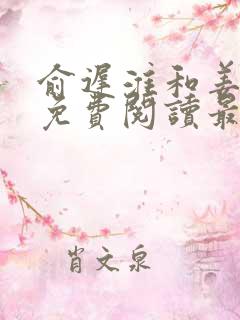 俞遲淮和姜
免費閱讀最
肖文泉